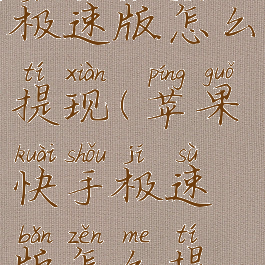 极速版怎么
tí xiàn píng guǒ
提现(苹果
kuài shǒu jí sù
快手极速
bǎn zěn me tí
版怎么提